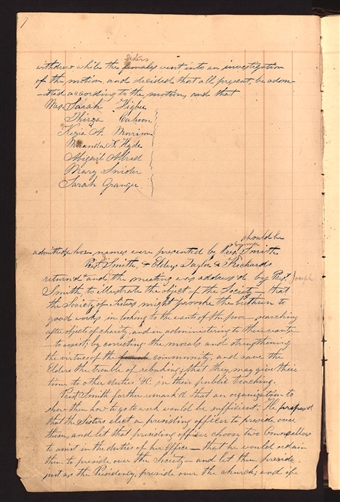 1
withdraw while the females went into an investigation
sisters
of the motion and decided that all present, be adm-
itted according to the motion, and that
Mrs Sarah Higbee
Thirza Cahoon
Kezia A. Morrison
Miranda N. Hyde
Abigail Allred
Mary Snider
Sarah Granger
should be
admitted whose names were presented by Prest. Smith.
Prest. Smith, & Elders Taylor & Richards
returned and the meeting was address'd by Prest. Joseph
Smith, to illustrate the object of the Society — that
the Society of sisters might provoke the brethren to
good works in looking to the wants of the poor — searching
after objects of charity, and in administering to their wants —
to assist; by correcting the morals and strengthening
the virtues of the community, and save the
Elders the trouble of rebuking; that they may give their
time to other duties &c. in their public teaching.
Prest. Smith further remark'd that an organization to
show them how to go to work would be sufficient. He propos'd
that the Sisters elect a presiding officer to preside over
them, and let that presiding officer choose two Counsellors
to assist in the duties of her Office — that he would ordain
them to preside over the Society — and let them preside
just as the Presidency, preside over the church; and if